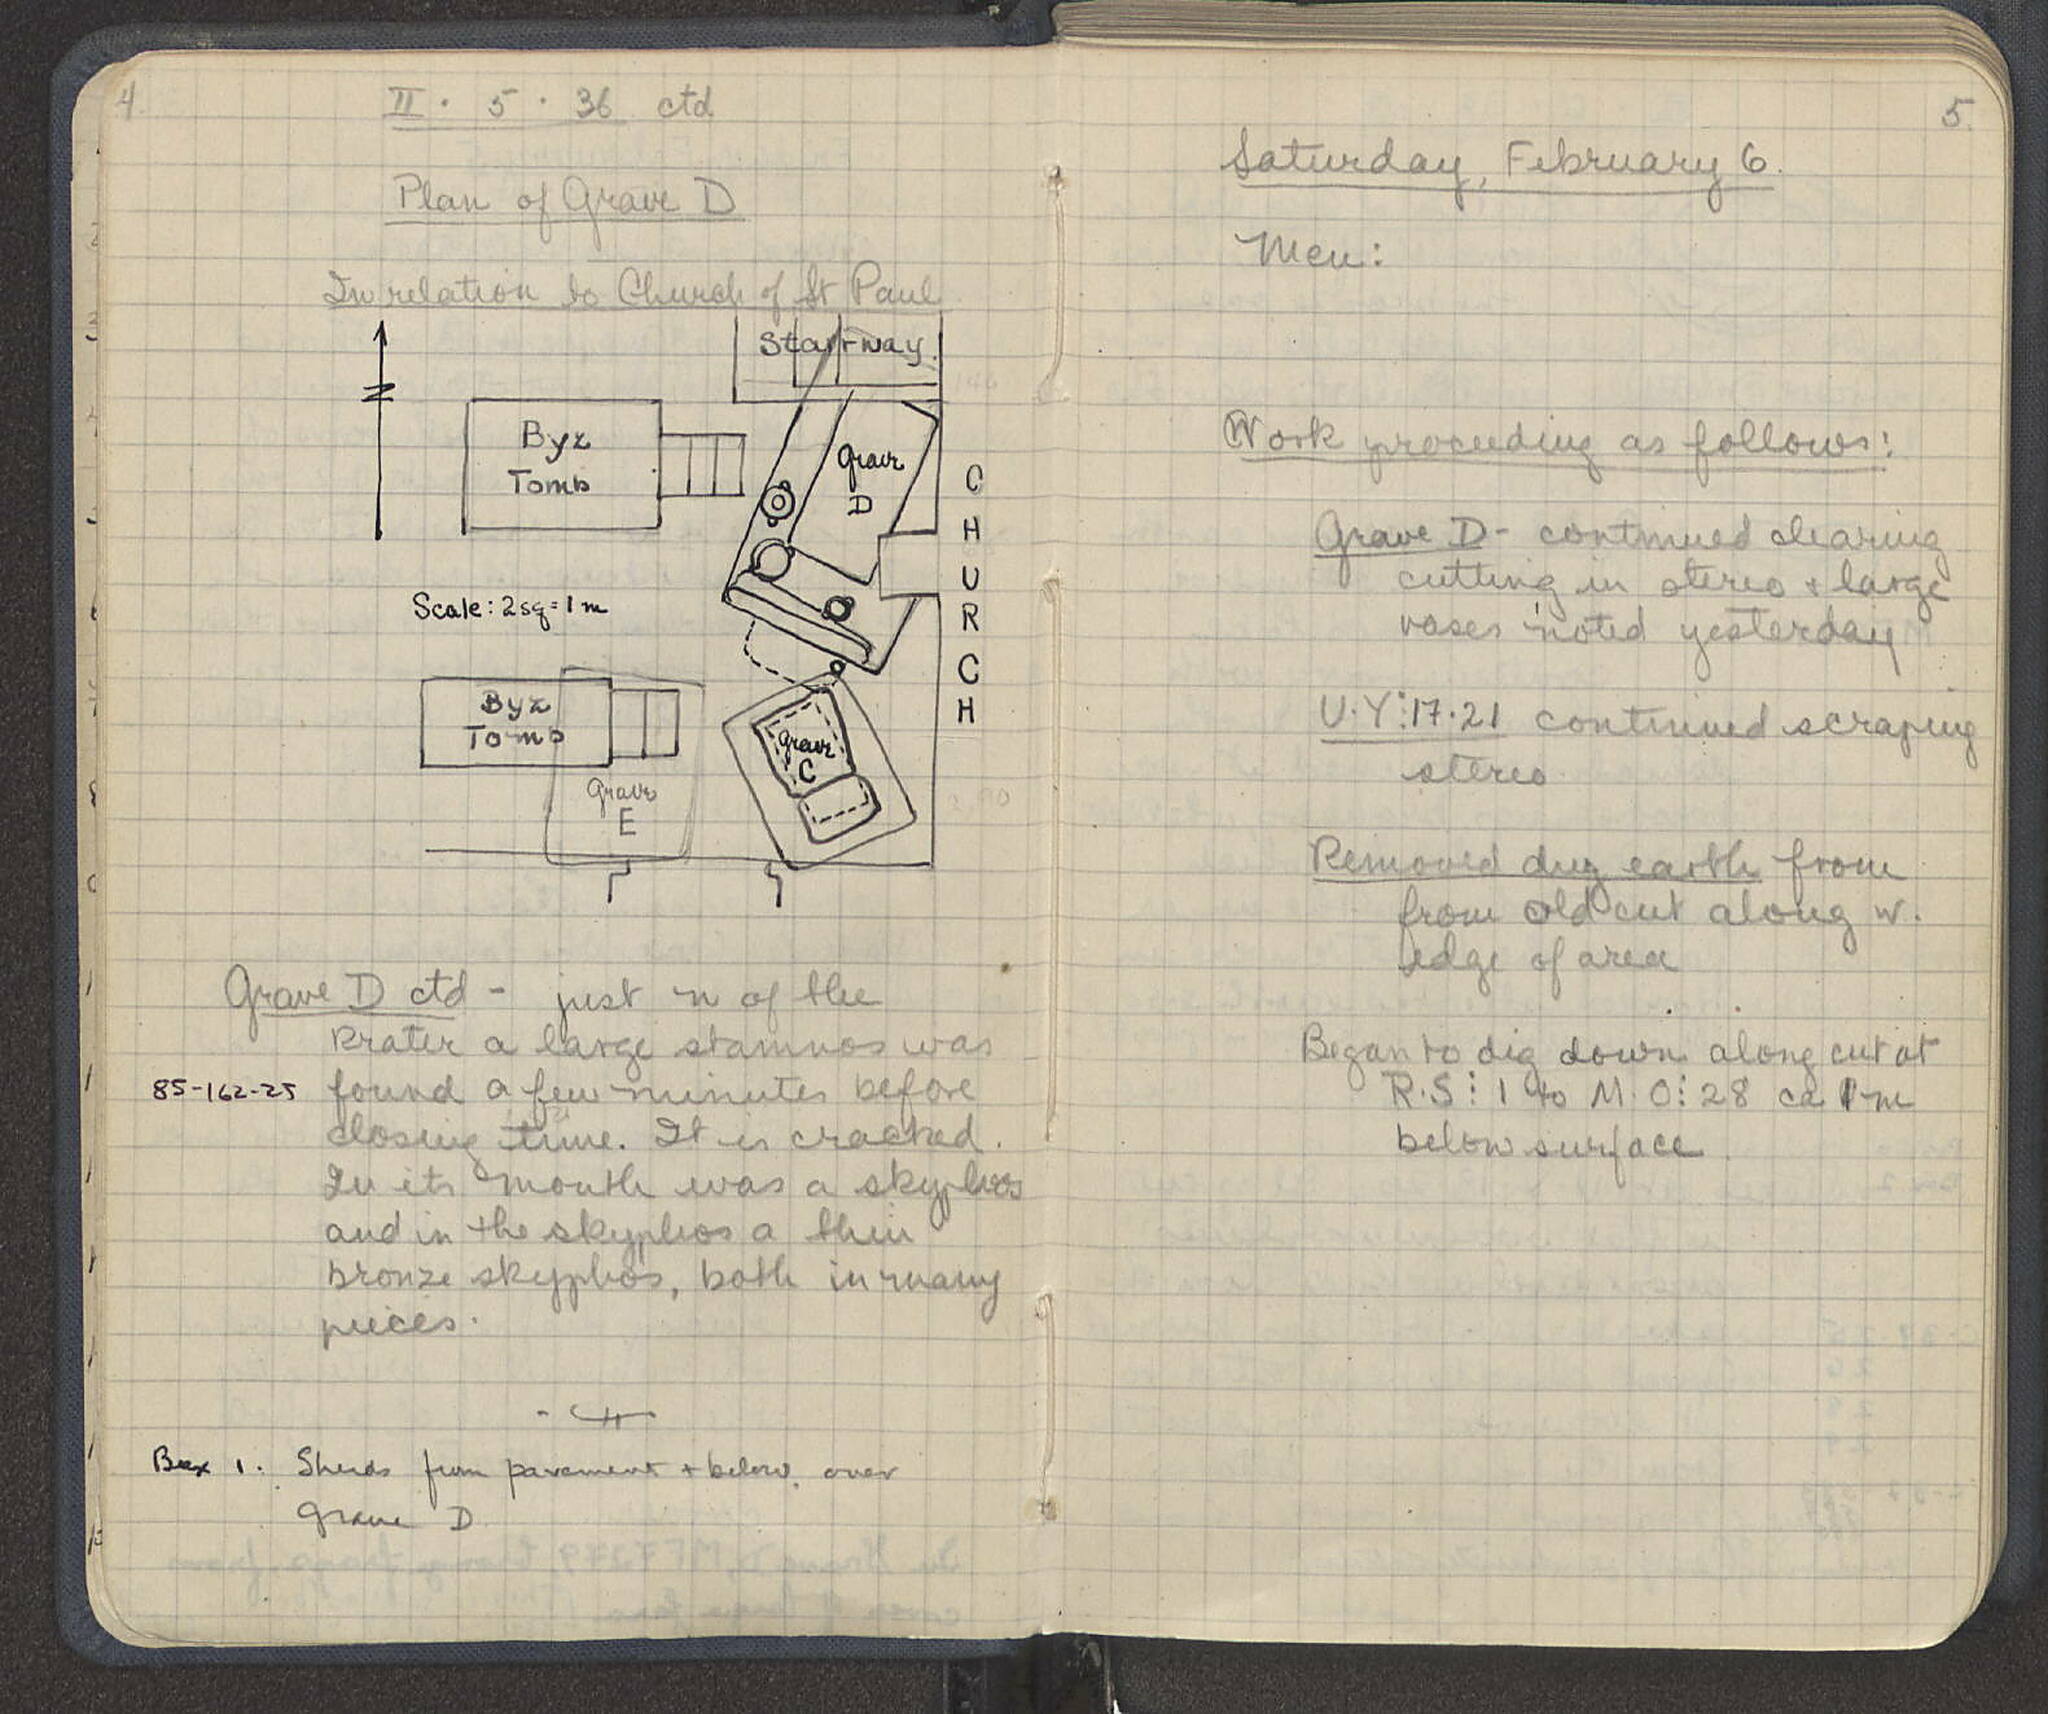 4.
II · 5 · 36 ctd
Plan of Grave D
In relation to Church of St Paul
Stairway
N
Byz
Tomb
Grave
D
CHURCH
Scale: 2sq=1m
Byz
Tomb
Grave
C
Grave
E
Grave D ctd - just n of the
krater a large stamnos was
85-162-25 found a few minutes before
closing time. It is cracked.
In its mouth was a skyphos
and in the skyphos a thin
bronze skyphos, both in many
pieces.
Box 1. Sherds from pavement + below, over
Grave D
5.
Saturday, February 6.
Men:
Work proceeding as follows:
Grave D - continued clearing
cutting in stereo + large
vases noted yesterday
U·Y:17·21 continued scraping
stereo
Removed dug earth from
from old cut along w.
edge of area
Began to dig down along cut at
R·S:1 to M·O:28 ca 1 m
below surface